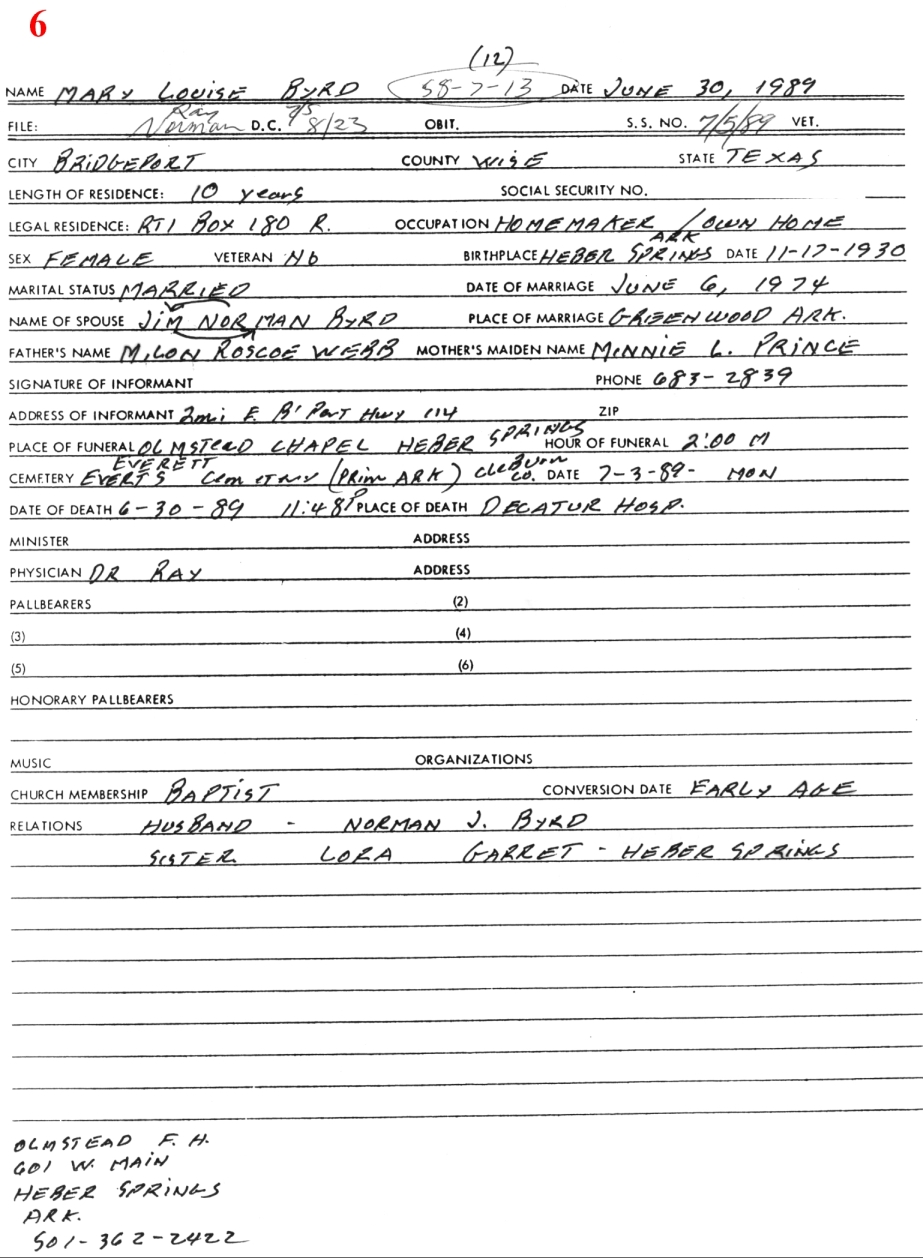 6
(12)
NAME MARY LOUISE BYRD 58-7-13 DATE JUNE 30, 1989
Ray 7/5
FILE: Norman D.C. 8/23 OBIT. S.S. NO. 7/5/89 VET.
CITY BRIDGEPORT COUNTY WISE STATE TEXAS
LENGTH OF RESIDENCE: 10 years SOCIAL SECURITY NO.
LEGAL RESIDENCE: RT1 Box 180 R. OCCUPATION HOMEMAKER / OWN HOME
ARK
SEX FEMALE VETERAN NO BIRTHPLACE HEBER SPRINGS DATE 11-17-1930
MARITAL STATUS MARRIED DATE OF MARRIAGE JUNE 6, 1974
NAME OF SPOUSE JIM NORMAN BYRD PLACE OF MARRIAGE GREENWOOD ARK.
FATHER'S NAME MILON ROSCOE WEBB MOTHER'S MAIDEN NAME MINNIE L. PRINCE
SIGNATURE OF INFORMANT PHONE 683-2839
ADDRESS OF INFORMANT 2mi E. B'Port Hwy 114 ZIP
PLACE OF FUNERAL OLMSTEAD CHAPEL HEBER SPRINGS HOUR OF FUNERAL 2:00 M
EVERETT
CEMETERY EVERTS Cemetery (Prim ARK) Cleburn CO. DATE 7-3-89- MON
DATE OF DEATH 6-30-89 11:48P PLACE OF DEATH DECATUR HOSP.
MINISTER ADDRESS
PHYSICIAN DR RAY ADDRESS
PALLBEARERS (2)
(3) (4)
(5) (6)
HONORARY PALLBEARERS
MUSIC ORGANIZATIONS
CHURCH MEMBERSHIP BAPTIST CONVERSION DATE EARLY AGE
RELATIONS HUSBAND - NORMAN J. BYRD
SISTER LORA GARRET - HEBER SPRINGS
OLMSTEAD F. H.
601 W. MAIN
HEBER SPRINGS
ARK.
501-362-2422